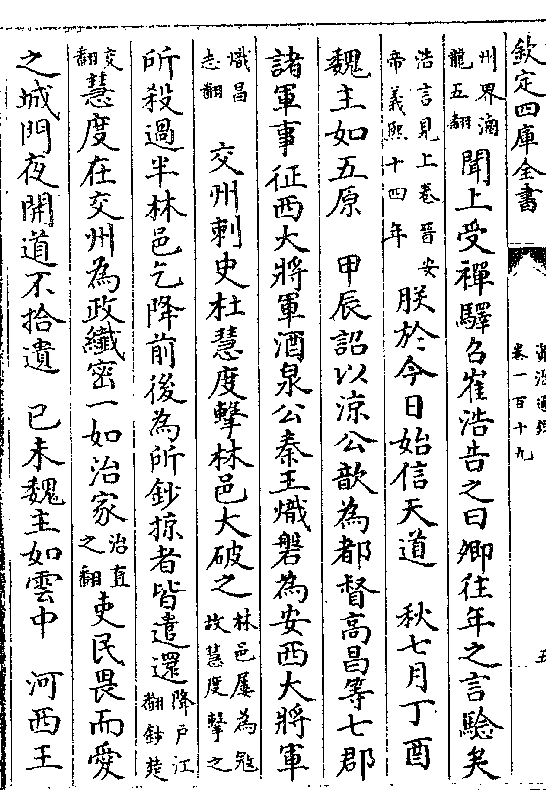 欽定四庫全書
資治通鑑
卷一百十九
五
州界滷龍五翻聞上受禪驛召崔浩告之曰卿往年之言驗矣
浩言見上卷晉安帝義熙十四年朕於今日始信天道　秋七月丁酉
魏主如五原　甲辰詔以涼公歆為都督高昌等七郡
諸軍事征西大將軍酒泉公秦王熾磐為安西大將軍
熾昌志翻　交州刺史杜慧度擊林邑大破之林邑屢為寇故慧度擊之
所殺過半林邑乞降前後為所鈔掠者皆遣還降戶江翻鈔楚
交翻慧度在交州為政纖密一如治家治直之翻吏民畏而愛
之城門夜開道不拾遺　已未魏主如雲中　河西王